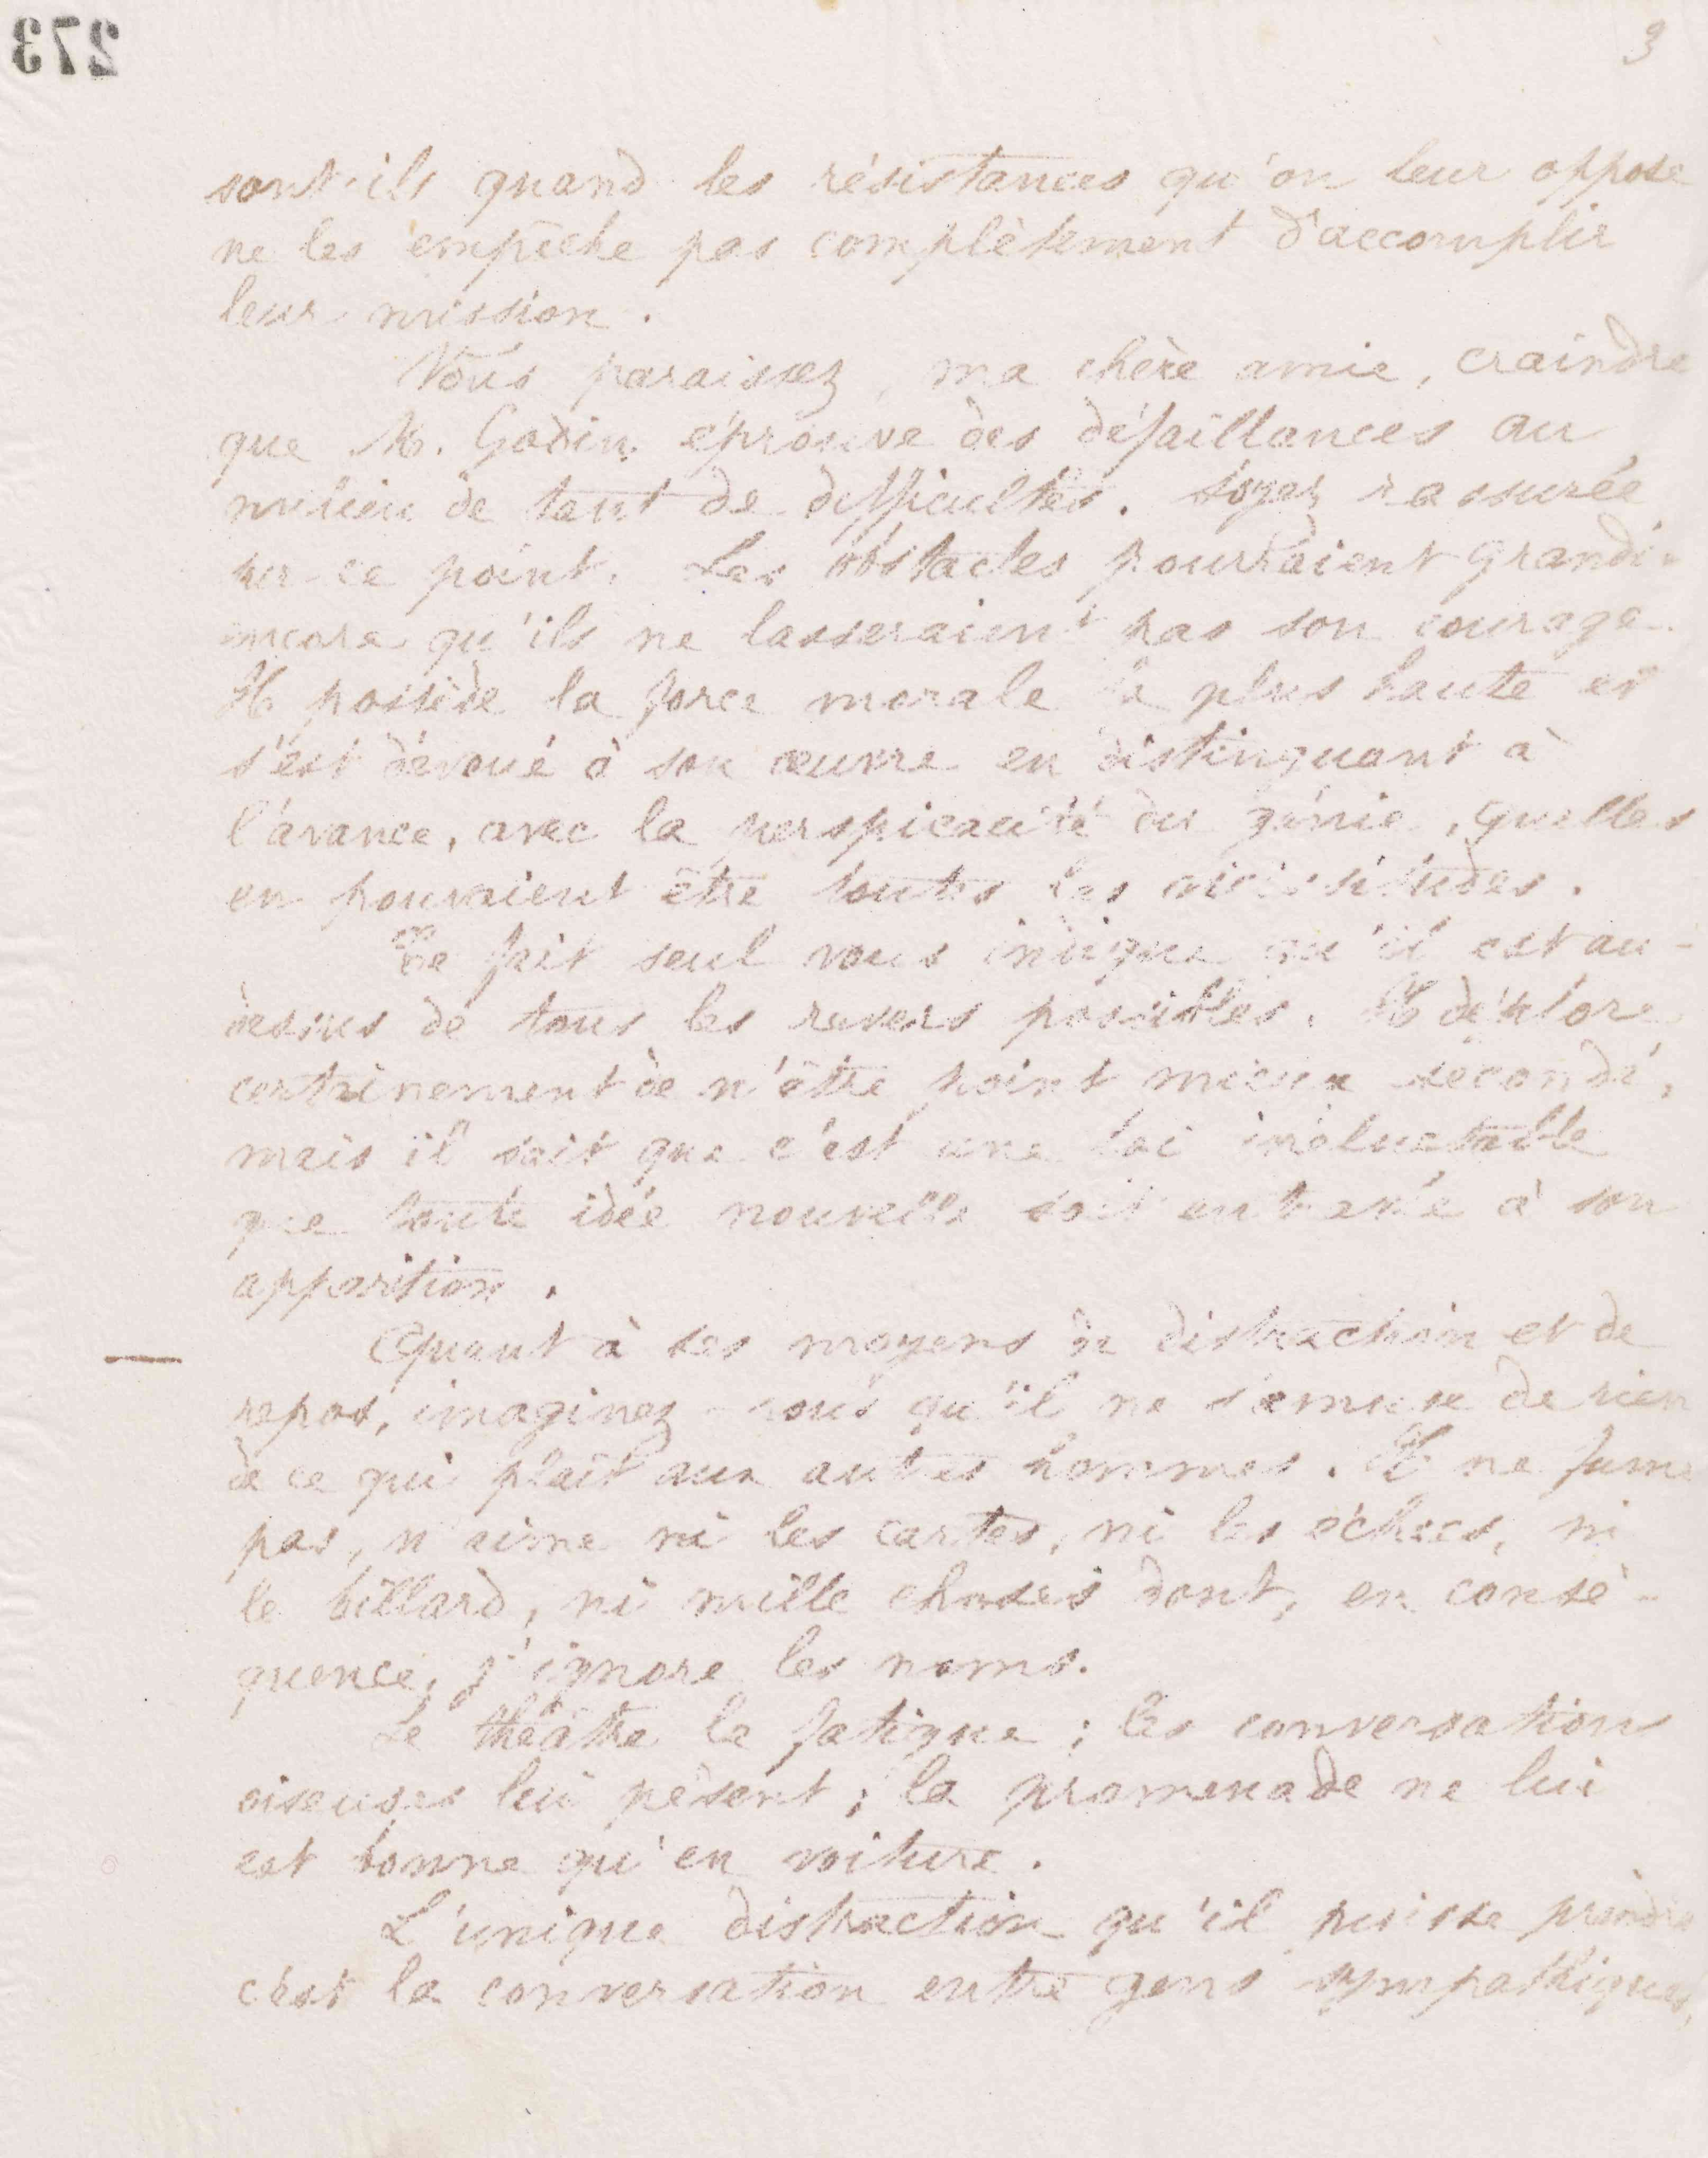 273
3
sont-ils quand les résistances qu'on leur oppose
ne les empêche pas complètement d'accomplir
leur mission.
Vous paraissez, ma chère amie, craindre
que M. Godin éprouve des défaillances au
milieu de tant de difficultés. Soyez rassurée
sur ce point. Les obstacles pourraient grandir
encore qu'ils ne lasseraient pas son courage.
Il possède la force morale la plus haute et
s'est dévoué à son œuvre en distinguant à
l'avance, avec la perspicacité du génie, quelles
en pouvaient être toutes les vicissitudes.
Ce fait seul vous indique qu'il est au-
dessus de tous les revers possibles. Il déplore
certainement de n'être point mieux secondé,
mais il sait que c'est une loi inéluctable
que toute idée nouvelle soit entravée à son
apparition.
Quant à ses moyens de distraction et de
repos, imaginez-vous qu'il ne s'amuse de rien
de ce qui plaît aux autres hommes. Il ne fume
pas, n'aime ni les cartes, ni les échecs, ni
le billard, ni mille choses dont, en consé-
quence, j'ignore les noms.
Le théâtre le fatigue ; les conversations
oiseuses lui pèsent ; la promenade ne lui
est bonne qu'en voiture.
L'unique distraction qu'il puisse prendre
c'est la conversation entre gens sympathiques,